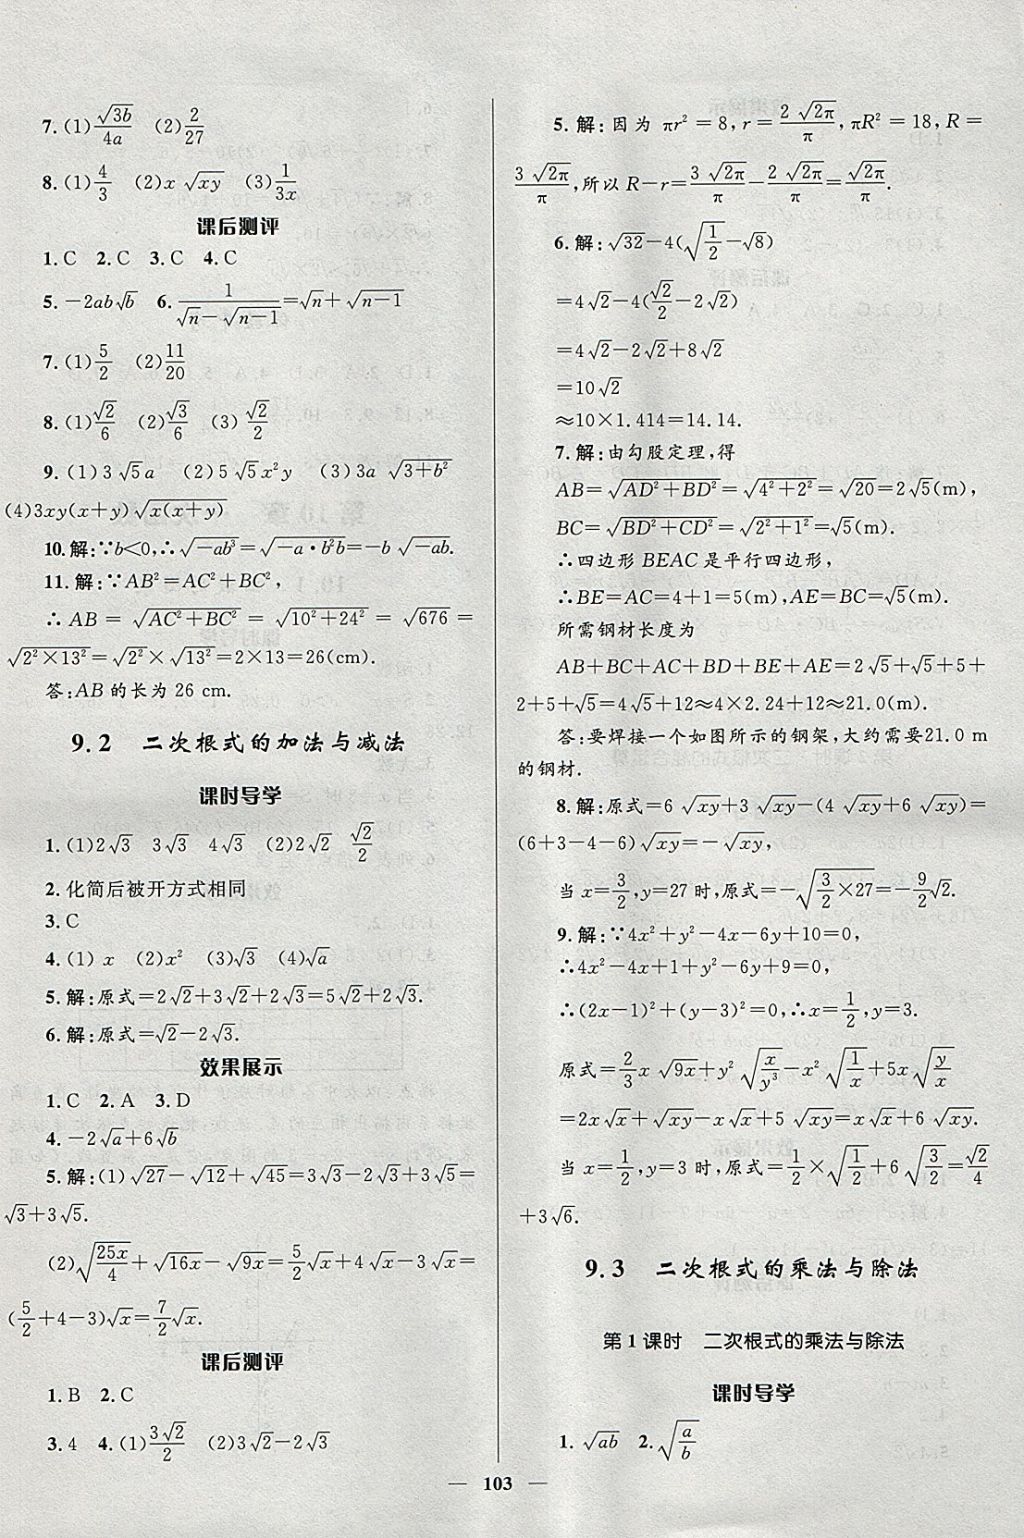 7.(1)√3b/4a (2)2/27
8.(1)4/3 (2)x√xy (3)1/3x
课后测评
1.C 2.C 3.C 4.C
5.-2ab√b 6.1/(√n-√(n-1))=√n+√(n-1)
7.(1)5/2 (2)11/20
8.(1)√2/6 (2)√3/6 (3)√2/2
9.(1)3√5a (2)5√5x²y (3)3a√(3+b²)
(4)3xy(x+y)√(x(x+y))
10.解:∵b<0,∴√(-ab³)=√(-a·b²b)=-b√(-ab).
11.解:∵AB²=AC²+BC²,
∴AB=√(AC²+BC²)=√(10²+24²)=√676=
√(2²×13²)=√2²×√13²=2×13=26(cm).
答:AB的长为26 cm.
9.2 二次根式的加法与减法
课时导学
1.(1)2√3 3√3 4√3 (2)2√2 √2/2
2.化简后被开方式相同
3.C
4.(1)x (2)x² (3)√3 (4)√a
5.解:原式=2√2+3√2+2√3=5√2+2√3.
6.解:原式=√2-2√3.
效果展示
1.C 2.A 3.D
4.-2√a+6√b
5.解:(1)√27-√12+√45=3√3-2√3+3√5=
√3+3√5.
(2)√(25x/4)+√16x-√9x=5/2√x+4√x-3√x=
(5/2+4-3)√x=7/2√x.
课后测评
1.B 2.C
3.4 4.(1)3√2/2 (2)3√2-2√3
5.解:因为πr²=8,r=2√2π/π,πR²=18,R=
3√2π/π,所以R-r=3√2π/π-2√2π/π=√2π/π.
6.解:√32-4(√(1/2)-√8)
=4√2-4(√2/2-2√2)
=4√2-2√2+8√2
=10√2
≈10×1.414=14.14.
7.解:由勾股定理,得
AB=√(AD²+BD²)=√(4²+2²)=√20=2√5(m),
BC=√(BD²+CD²)=√(2²+1²)=√5(m).
∴四边形BEAC是平行四边形,
∴BE=AC=4+1=5(m),AE=BC=√5(m).
所需钢材长度为
AB+BC+AC+BD+BE+AE=2√5+√5+5+
2+5+√5=4√5+12≈4×2.24+12≈21.0(m).
答:要焊接一个如图所示的钢架,大约需要21.0 m
的钢材.
8.解:原式=6√xy+3√xy-(4√xy+6√xy)=
(6+3-4-6)√xy=-√xy,
当x=3/2,y=27时,原式=-√(3/2×27)=-9/2√2.
9.解:∵4x²+y²-4x-6y+10=0,
∴4x²-4x+1+y²-6y+9=0,
∴(2x-1)²+(y-3)²=0,∴x=1/2,y=3.
原式=2/3x√9x+y²√(x/y³)-x²√(1/x)+5x√(y/x)
=2x√x+√xy-x√x+5√xy=x√x+6√xy.
当x=1/2,y=3时,原式=1/2×√(1/2)+6√(3/2)=√2/4
+3√6.
9.3 二次根式的乘法与除法
第1课时 二次根式的乘法与除法
课时导学
1.√ab 2.√(a/b)
— 103 —